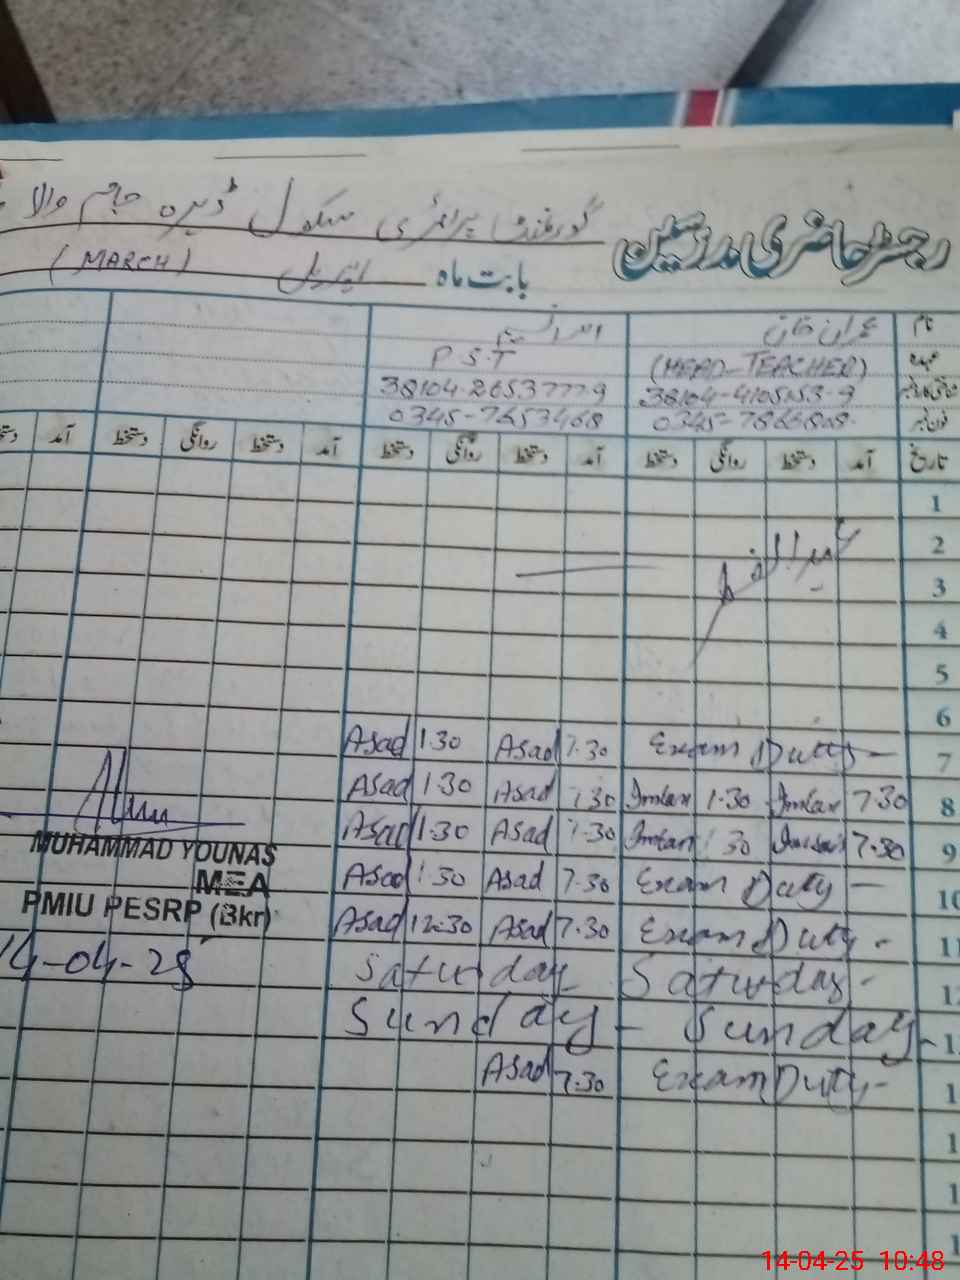 گورنمنٹ پرائمری سکول ڈیرہ جام والا
رجسٹر حاضری مدرسین
بابت ماہ اپریل (MARCH)
نام عمران خان
عہدہ (HEAD-TEACHER) P.S.T
38104-2653777-9
فون نمبر 0345-7653468
تاریخ آمد دستخط روانگی دستخط آمد دستخط روانگی دستخط آمد دستخط روانگی دستخط آمد
1
2
3
4
5
6
7 Exam Duty - 7.30 Asad 1.30 Asad
8 7.30 Imran 1.30 Imran 7.30 Asad 1.30 Asad
9 7.30 Imran 1.30 Imran 7.30 Asad 1.30 Asad
10 Exam Duty - 7.30 Asad 1.30 Asad
11 Exam Duty - 7.30 Asad 12.30 Asad
Saturday - Saturday
Sunday - Sunday
Exam Duty - 7.30 Asad
MUHAMMAD YOUNAS
MEA
PMIU PESRP (Bkr)
14-04-25
14-04-25 10:48